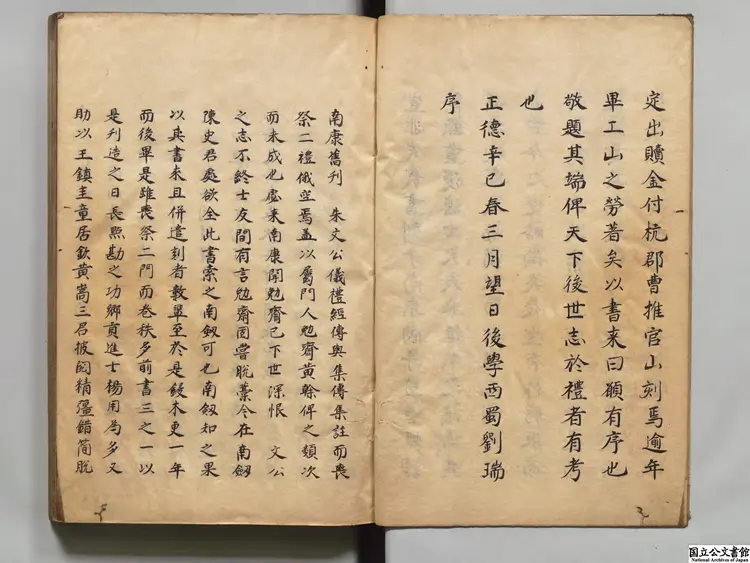 定出贖金付杭郡曹推官山刻焉逾年
畢工山之勞著矣以書来曰願有序也
敬題其端俾天下後世志於禮者有考
也
正德辛巳春三月望日後學西蜀劉瑞
序
南康舊刊 朱文公儀禮經傳與集傳集註而喪
祭二禮俄空焉盖以屬門人勉齋黃榦俾之類次
而未成也虙来南康聞勉齋已下世深恨 文公
之志不終士友間有言勉齋固嘗脫藁今在南劔
陳史君處欲全此書索之南劔可也南劔知之果
以其書来且併遣刻者數輩至於是鋟木更一年
而後畢是雖喪祭二門而卷秩多前書三之一以
是刋造之日長照勘之功鄉貢進士楊用為多又
助以王鎮圭童居欽黃嵩三君披閱精彊錯簡脫
国立公文書館
National Archives of Japan